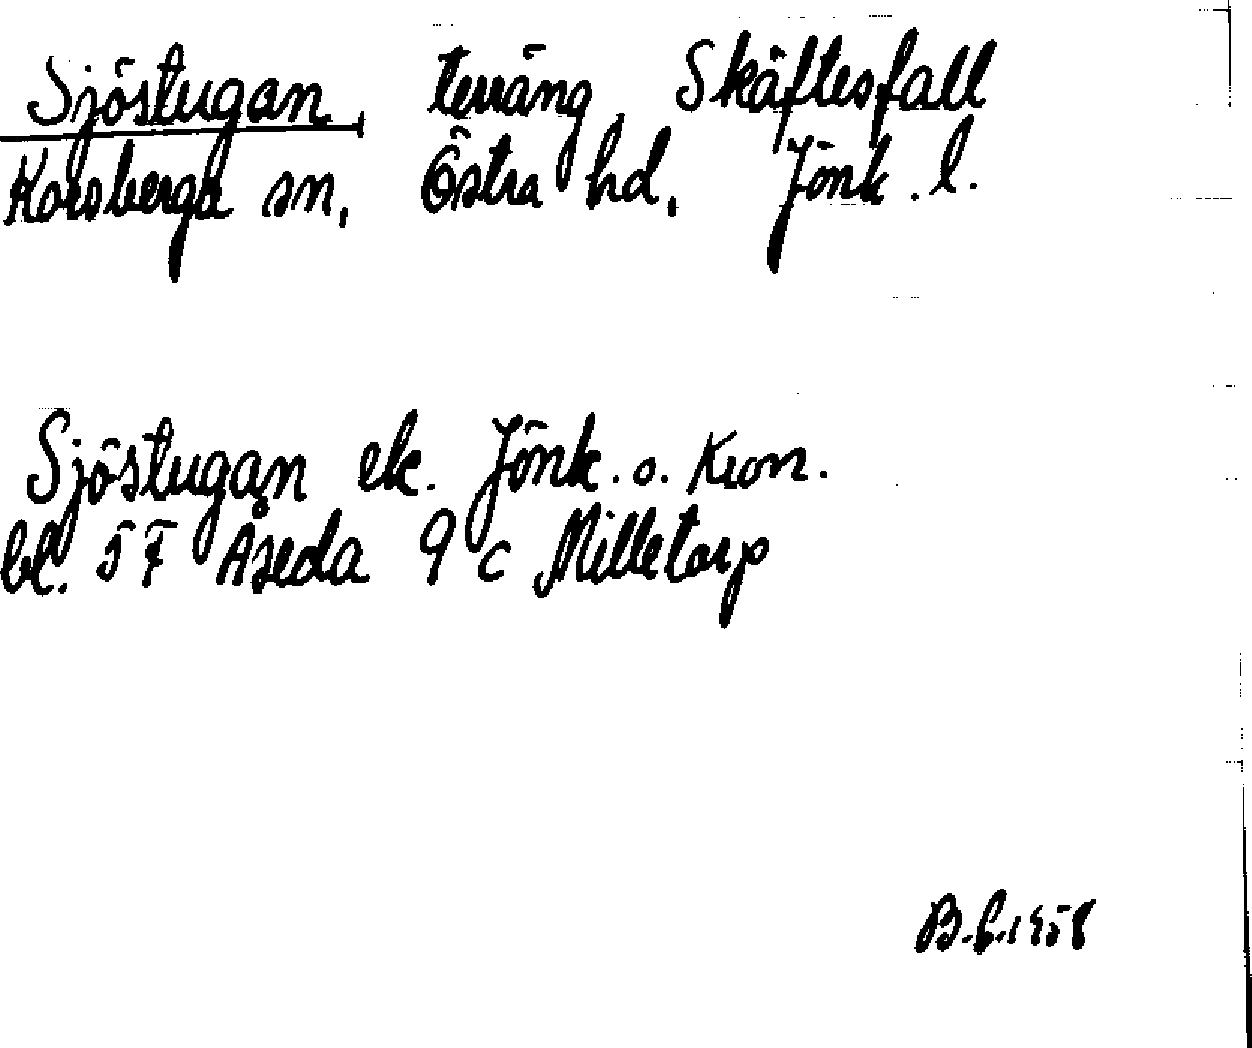 Sjöstugan, terräng, Skäftesfall
Korsberga sn, Östra hd, Jönk. l.
Sjöstugan ek. Jönk. o. Kron.
bl. 5F Åseda 9 c Milletorp
B.L. 1958